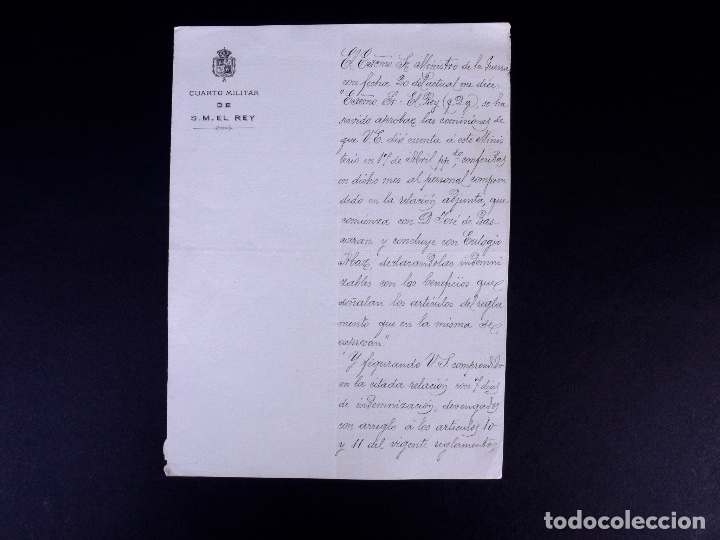 CUARTO MILITAR
DE
S. M. EL REY
El Excmo Sr. Ministro de la Guerra,
con fecha 20 del actual me dice
"Excmo Sr.- El Rey (q. D. g.), se ha
servido aprobar las comisiones de
que V. E. dió cuenta á este Minis
terio en 17 de Abril pp.do, conferidas
en dicho mes al personal compren
dido en la relación adjunta, que
comienza con D. José de Bas
caran y concluye con Eulogio
declarandolas indemni
zables con los beneficios que
señalan los artículos del regla
mento que en la misma se
expresan"
Y figurando V. S. comprendido
en la citada relación con días
de indemnización, devengados
con arreglo á los articulos 10
y 11 del vigente reglamento,
todocoleccion